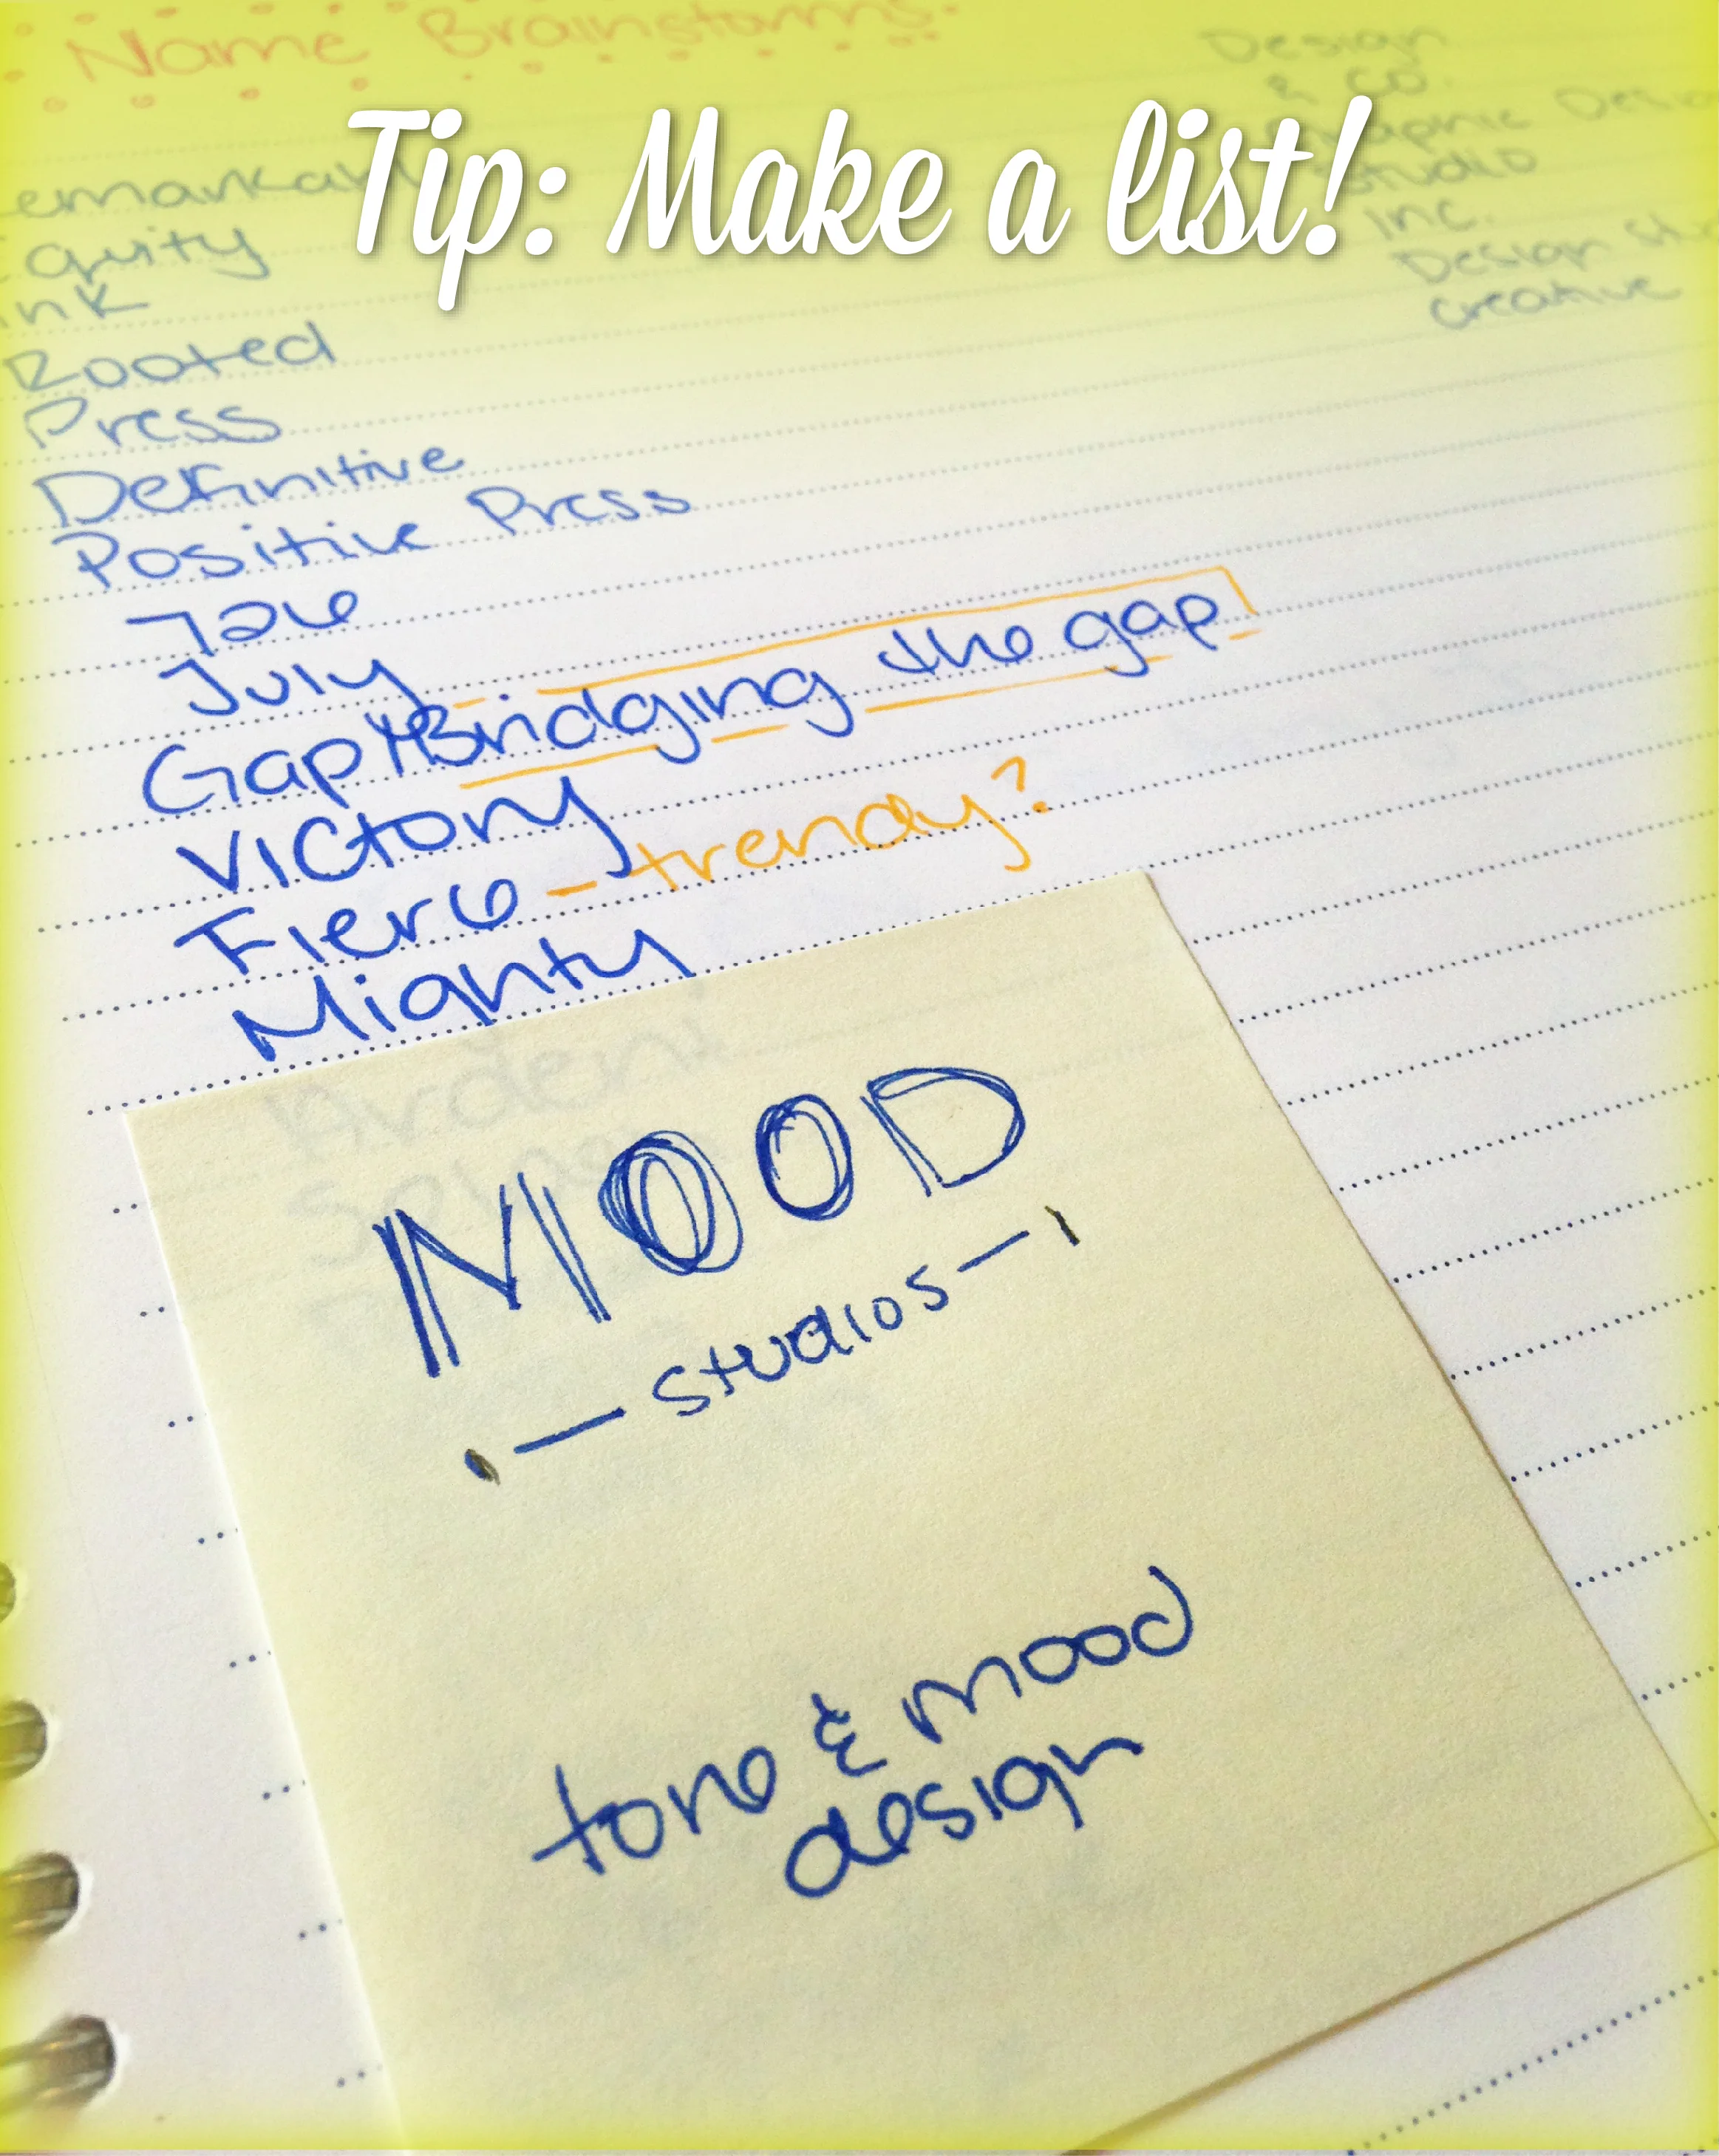 Name Brainstorms
Tip: Make a list!
Design
& Co.
Graphic
Studio
Inc.
Design
Creative
Equity
Ink
Rooted
Press
Definitive
Positive Press
July
Gap Bridging the gap
Victory
Fierce - trendy?
Mighty
MOOD
studios
tone & mood
design